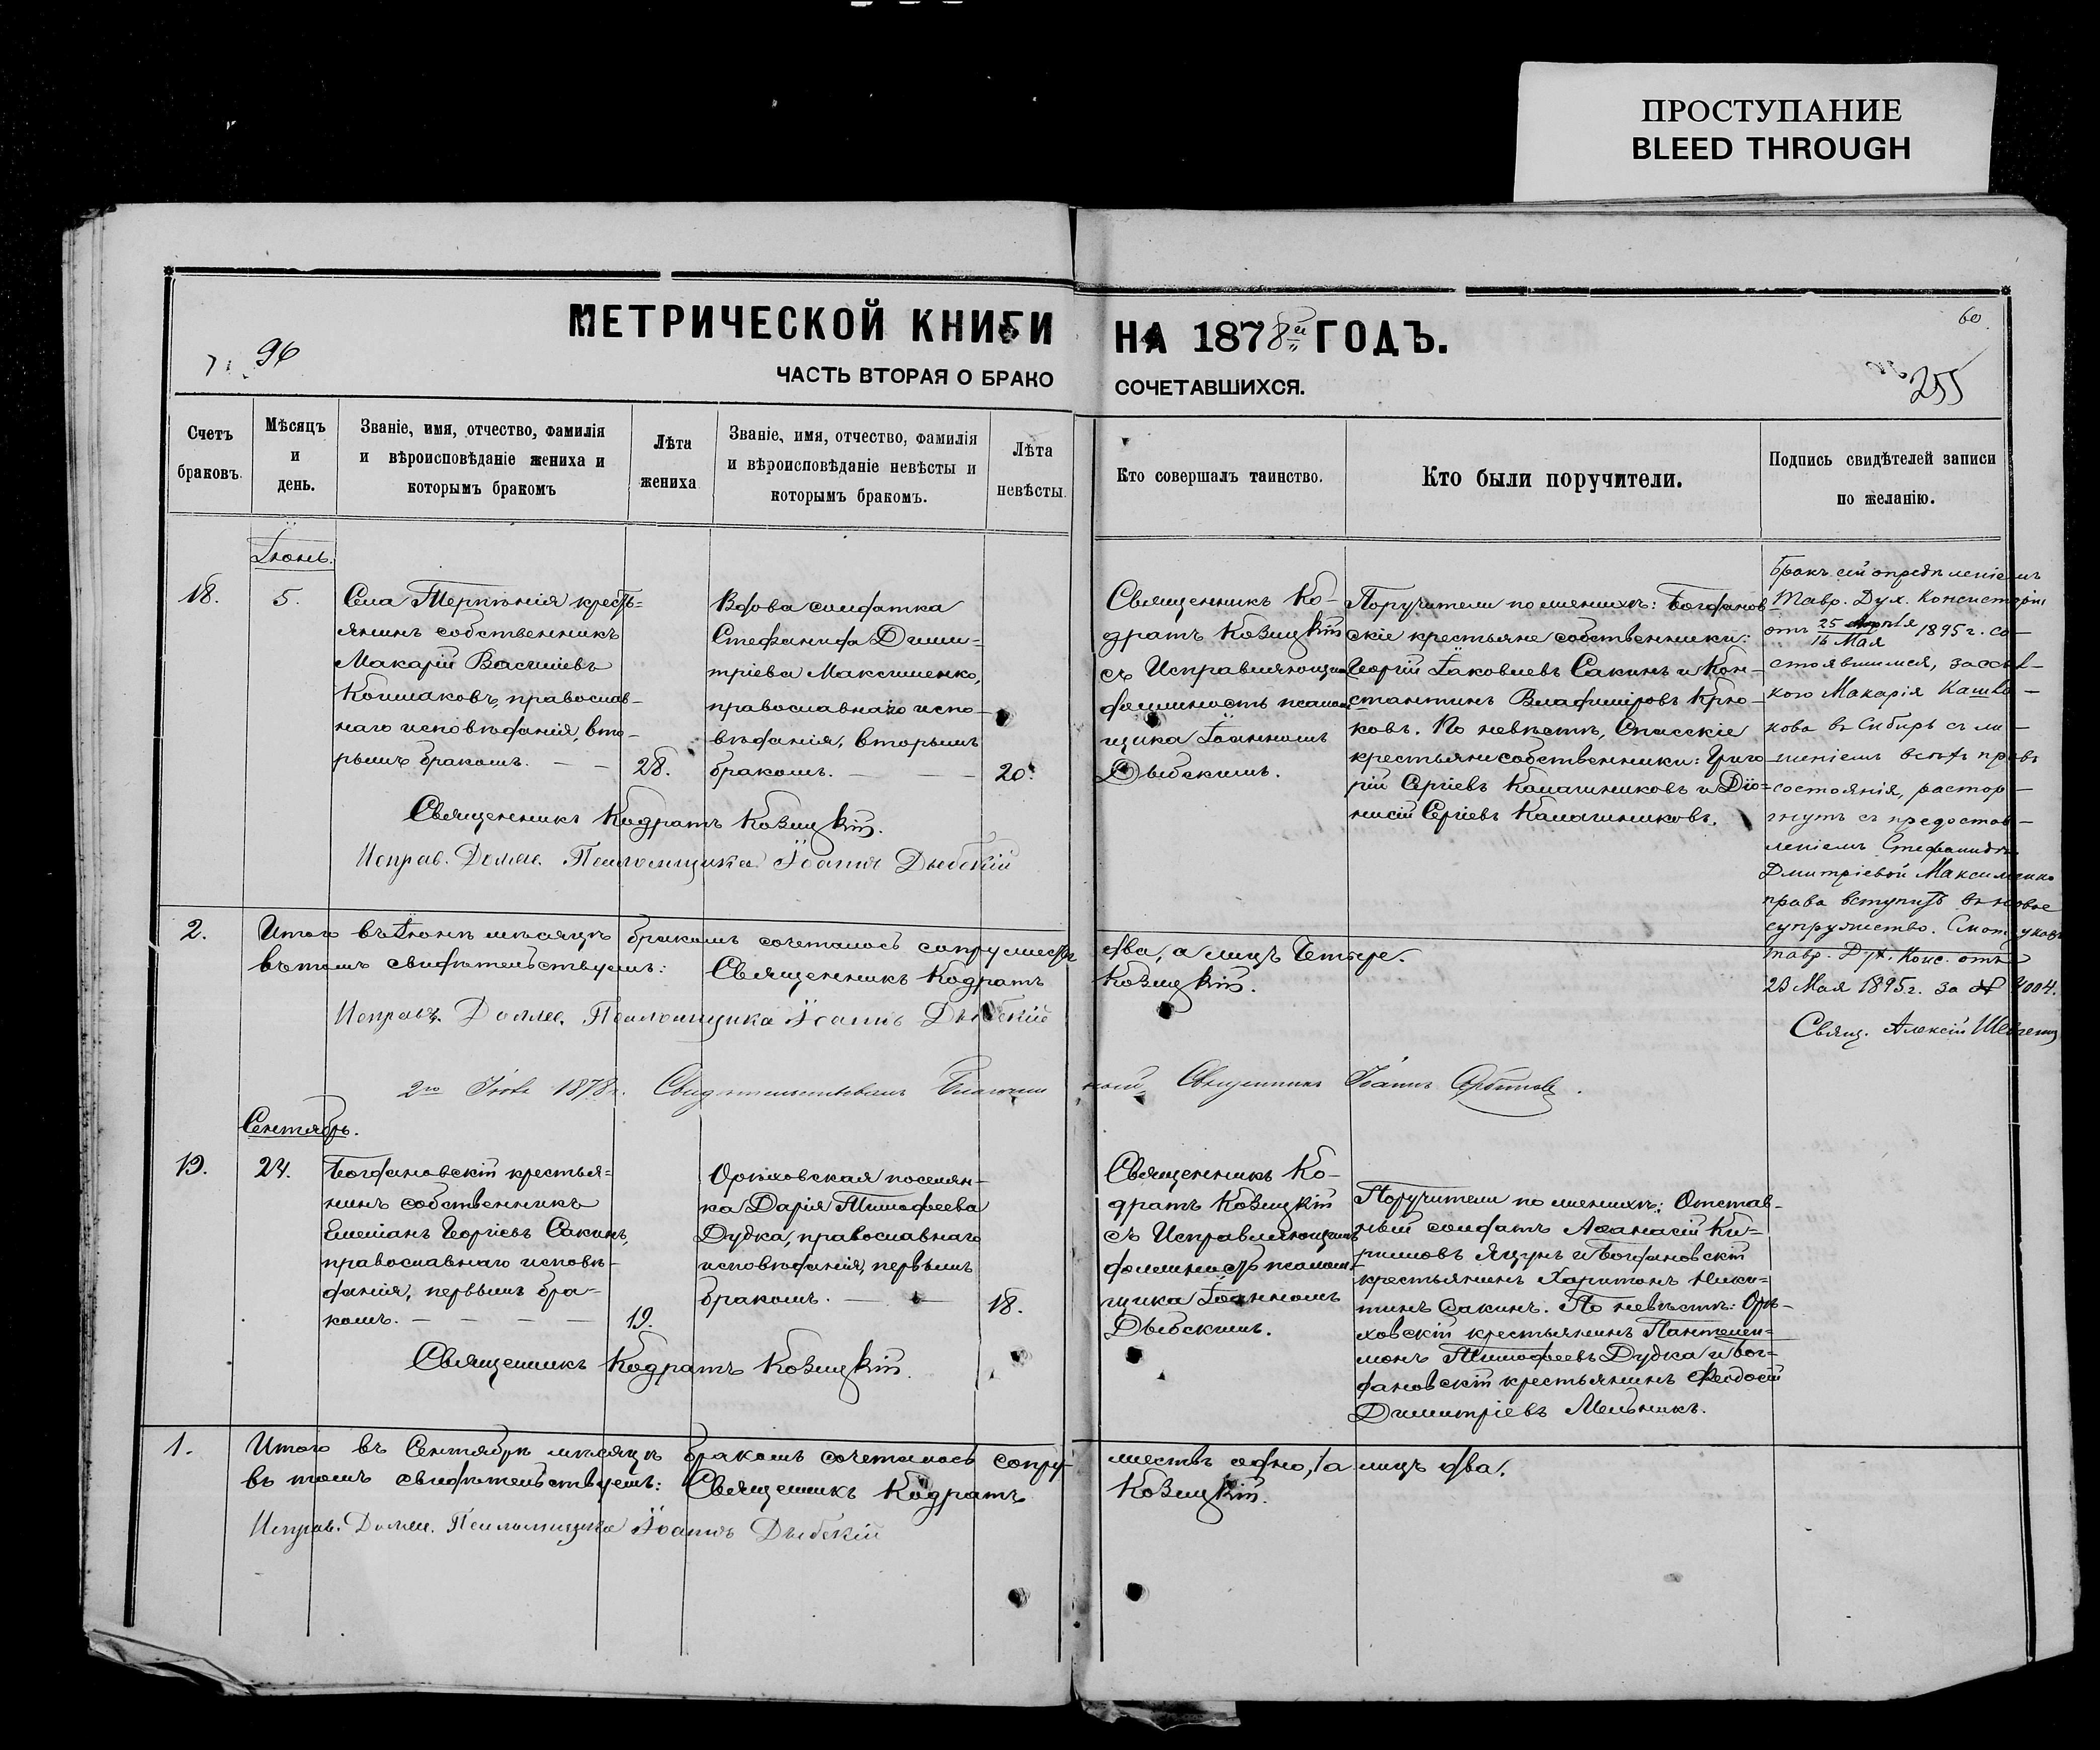 ПРОСТУПАНИЕ
BLEED THROUGH
МЕТРИЧЕСКОЙ КНИГИ НА 1878й ГОДЪ.
ЧАСТЬ ВТОРАЯ О БРАКОСОЧЕТАВШИХСЯ.
96
60
255
Счетъ
браковъ.
Мѣсяцъ
и
день.
Званіе, имя, отчество, фамилія
и вѣроисповѣданіе жениха и
которымъ бракомъ
Лѣта
жениха
Званіе, имя, отчество, фамилія
и вѣроисповѣданіе невѣсты и
которымъ бракомъ.
Лѣта
невѣсты.
Кто совершалъ таинство.
Кто были поручители.
Подпись свидѣтелей записи
по желанію.
Іюнь.
18.
5.
Села Терпѣнія кресть=
янинъ собственникъ
Макарій Василіевъ
Кошмаковъ, православ-
наго исповѣданія, вто-
рымъ бракомъ.
28.
Вдова солдатка
Стефанида Дими-
тріева Максименко,
православнаго испо-
вѣданія, вторымъ
бракомъ.
20.
Священникъ Ко-
дратъ Козицкій
съ Исправляющимъ
должность псалом-
щика Іоанномъ
Дыбскимъ.
Поручители по женихѣ: Богданов-
скіе крестьяне собственники:
Георгій Іаковлевъ Сакинъ и Кон-
стантинъ Владиміровъ Крю-
ковъ. По невѣстѣ, Спасскіе
крестьяне собственники: Григо
рій Сергіевъ Калашниковъ и Діо-
нисій Сергіевъ Калашниковъ.
Бракъ сей опредѣленіемъ
Тавр. Дух. Консисторіи
отъ 25 Апрѣля
16 Мая 1895 г. со-
стоявшимся, за ссыл-
кою Макарія Кашма-
кова въ Сибирь съ ли-
шеніемъ всѣхъ правъ
состоянія, растор-
гнутъ съ предостав-
леніемъ Стефанидѣ
Дмитріевой Максименко
права вступить въ новое
супружество. Смот. указъ
Тавр. Дух. Конс. отъ
23 Мая 1895 г. за №
Свящ. Алексій
Священникъ Кодратъ Козицкій.
Исправ. Должн. Псаломщика Іоаннъ Дыбскій
2.
Итого въ Іюнѣ мѣсяцѣ бракомъ сочеталось супружествъ два, а лицъ четыре.
въ томъ свидѣтельствуемъ: Священникъ Кодратъ Козицкій.
Исправ. Должн. Псаломщика Іоаннъ Дыбскій
2го 1878 г. Свидѣтельствовалъ Благочинный Священникъ Іоаннъ
Сентябрь.
19.
24.
Богдановскій крестья-
нинъ собственникъ
Емеліанъ Георгіевъ Сакинъ,
православнаго исповѣ-
данія, первымъ бра-
комъ.
19.
Орѣховская поселян-
ка Дарія Тимофеева
Дудка, православнаго
исповѣданія, первымъ
бракомъ.
18.
Священникъ Ко-
дратъ Козицкій
съ Исправляющимъ
должность псалом-
щика Іоанномъ
Дыбскимъ.
Поручители по женихѣ: Отстав-
ный солдатъ Аѳанасій Ки-
рилловъ Яцунъ и Богдановскій
крестьянинъ Харитонъ Ники-
тинъ Сакинъ. По невѣстѣ: Орѣ-
ховскій крестьянинъ Пантелеи-
монъ Тимофеевъ Дудка и Бог-
дановскій крестьянинъ Ѳеодосій
Димитріевъ Мельникъ.
Священникъ Кодратъ Козицкій.
1.
Итого въ Сентябрѣ мѣсяцѣ бракомъ сочеталось супружествъ одно, а лицъ два.
въ томъ свидѣтельствуемъ: Священникъ Кодратъ Козицкій.
Исправ. Должн. Псаломщика Іоаннъ Дыбскій